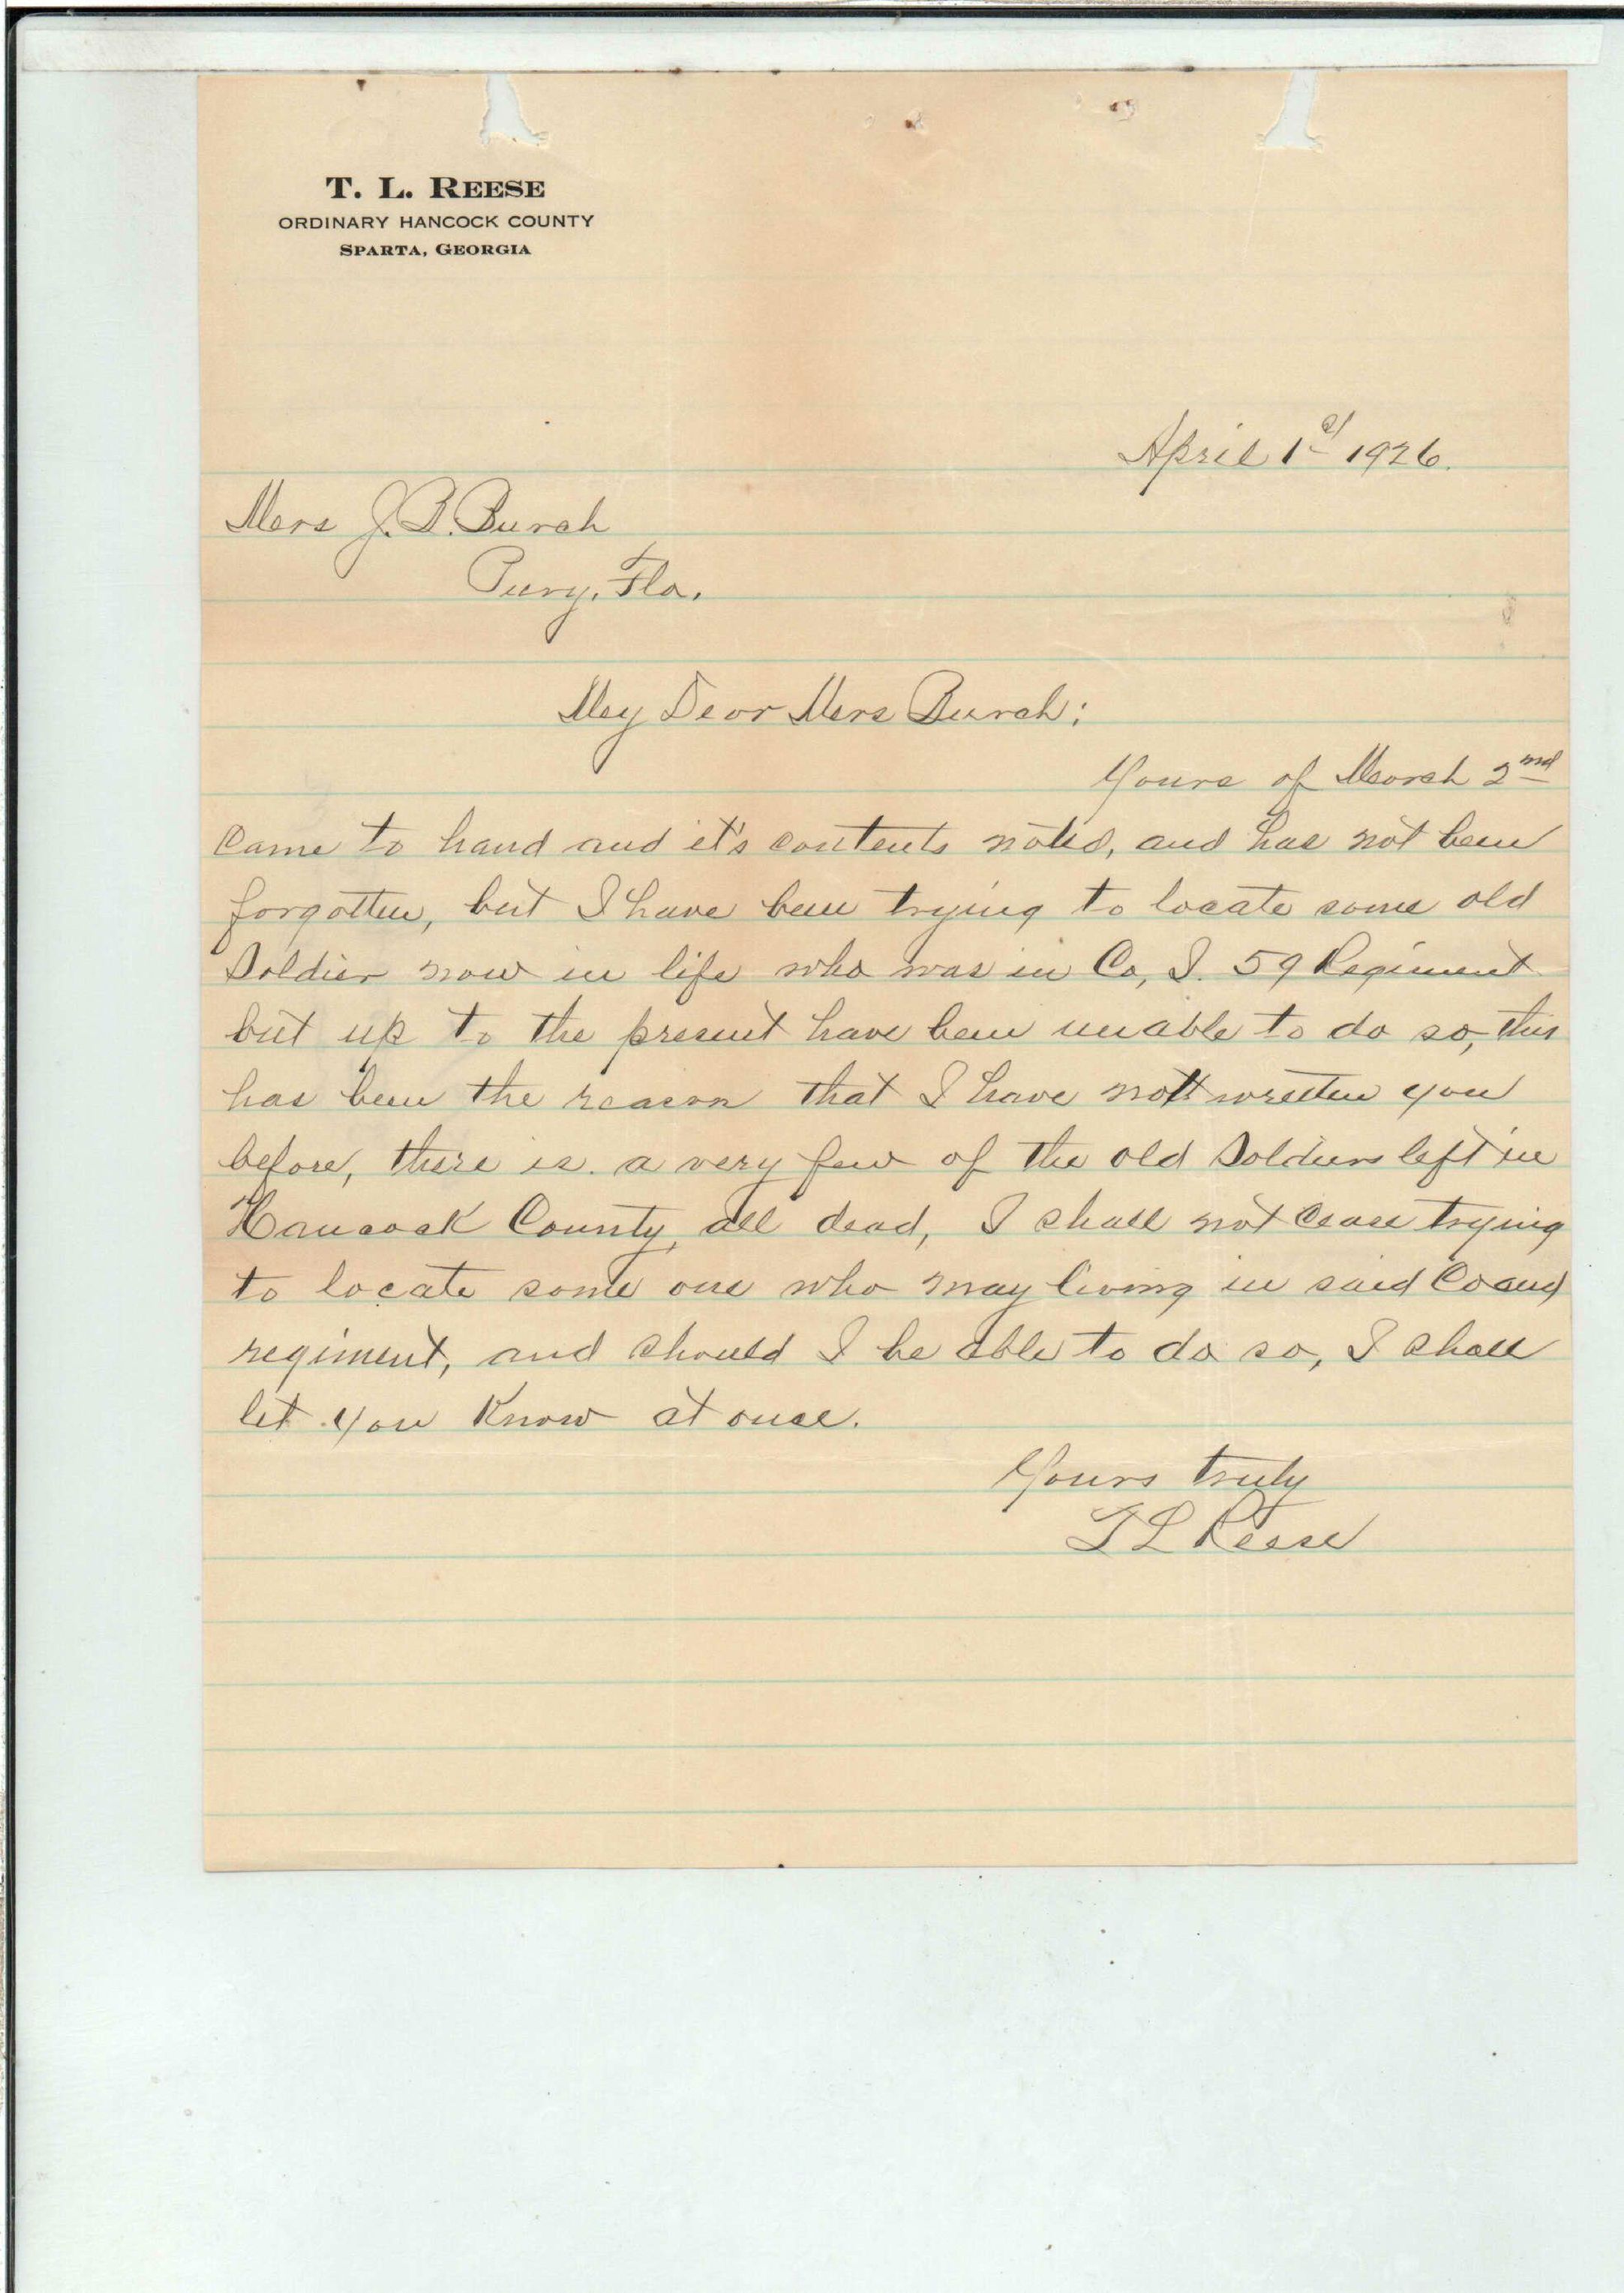 T. L. REESE
ORDINARY HANCOCK COUNTY
SPARTA, GEORGIA
April 1st 1926.
Mrs J. B. Burch
Perry, Fla.
My Dear Mrs Burch:
Yours of March 2nd
came to hand and it's contents noted, and has not been
forgotten, but I have been trying to locate some old
Soldier now in life who was in Co, I. 59 Regiment
but up to the present have been unable to do so, this
has been the reason that I have not written you
before, there is a very few of the old Soldiers left in
Hancock County, all dead, I shall not cease trying
to locate some one who may living in said Co and
regiment, and should I be able to do so, I shall
let you know at once.
Yours truly
T L Reese